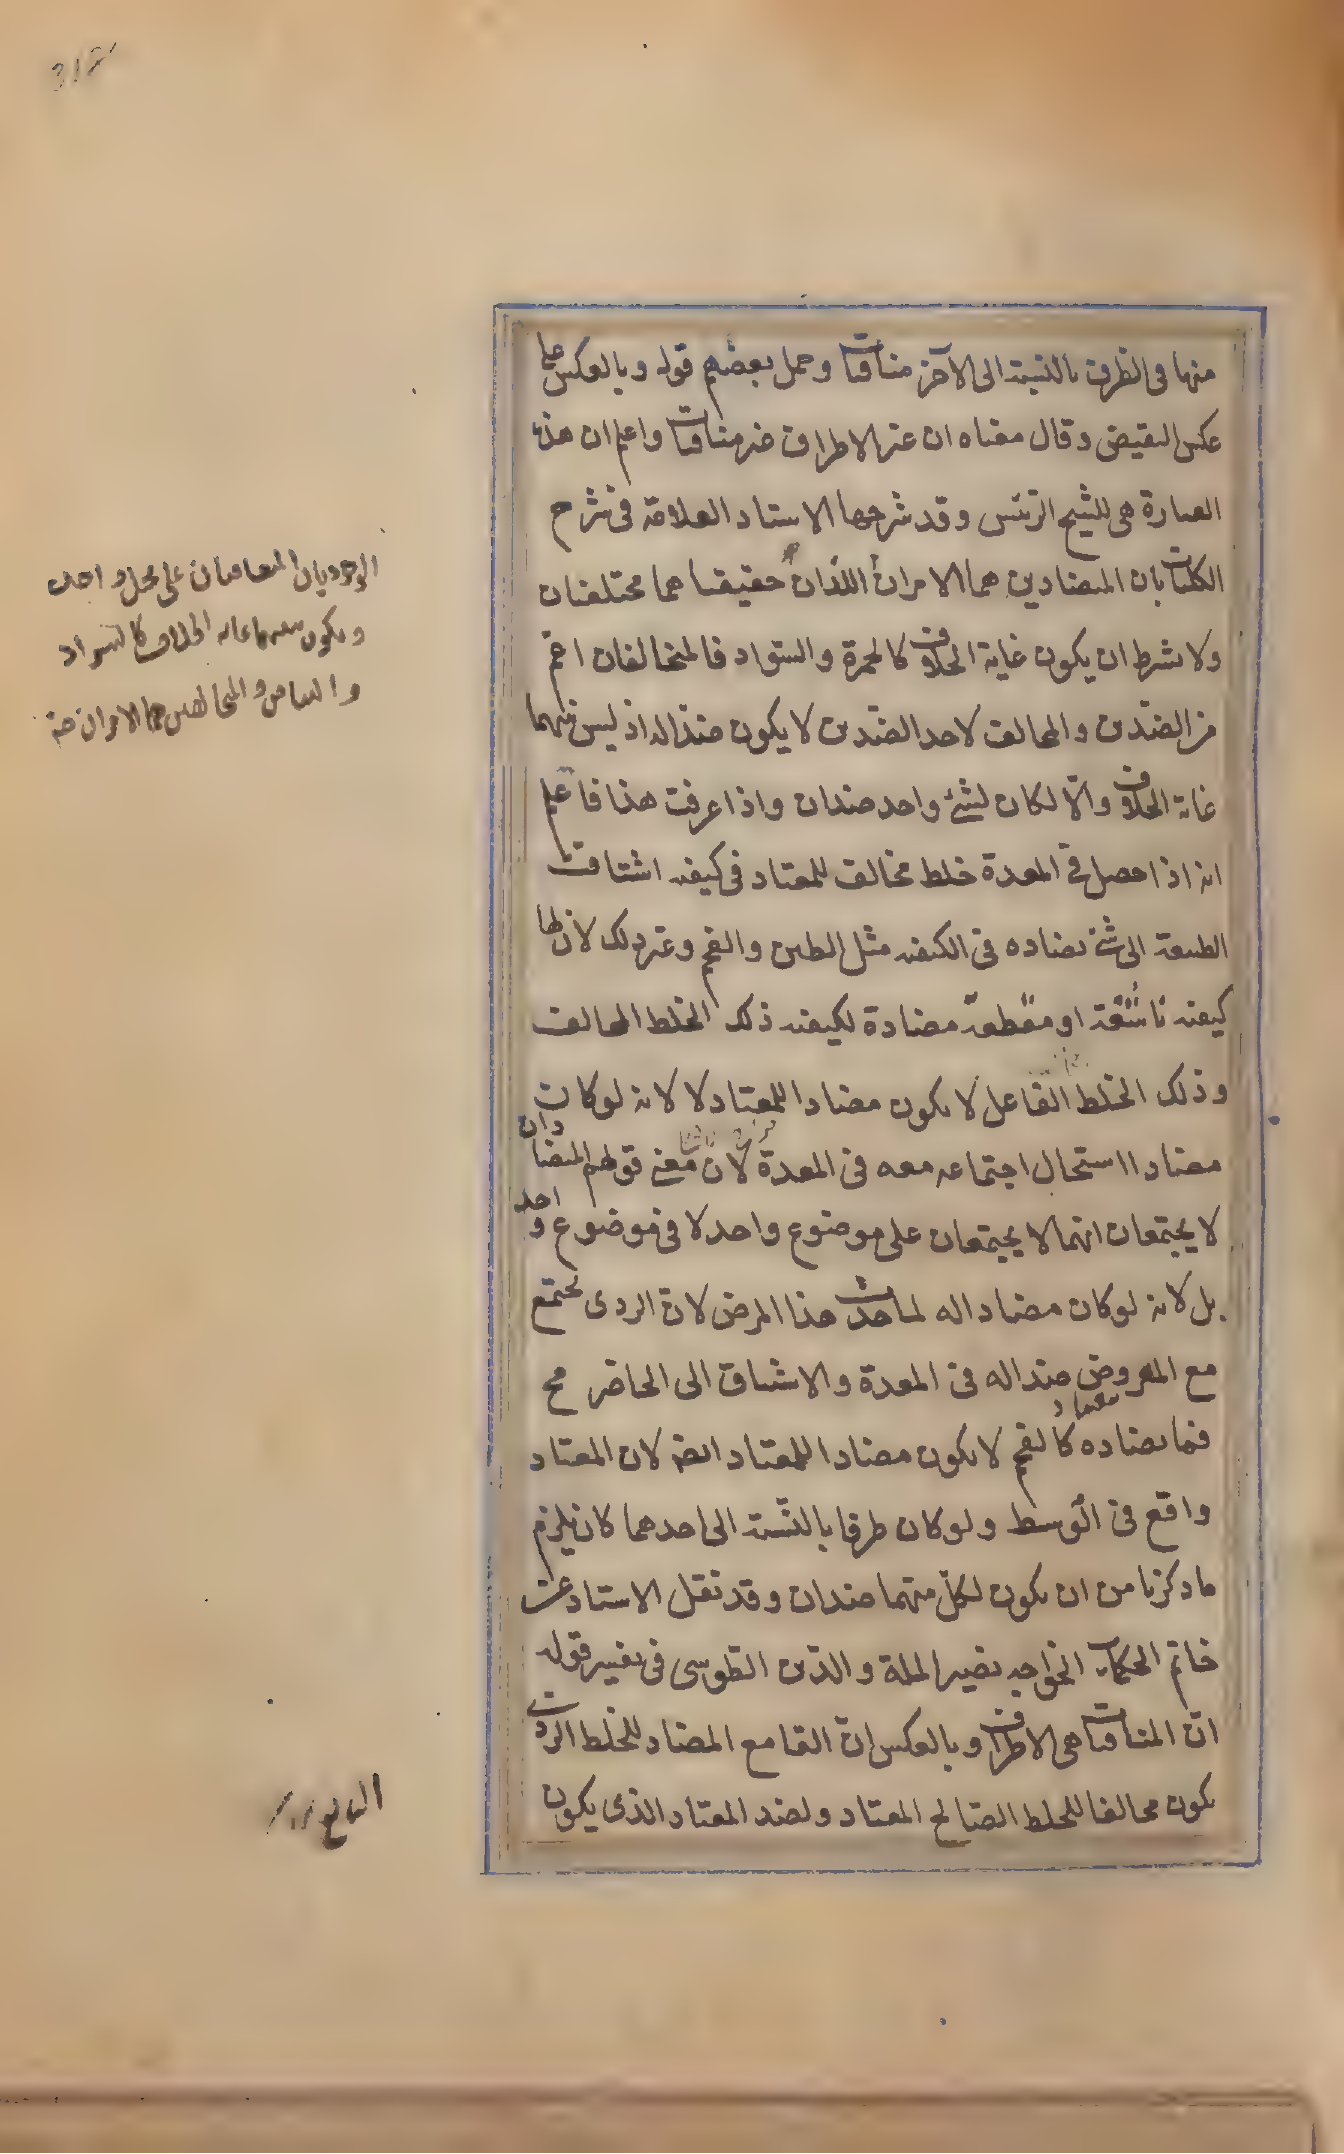 منهما فى الطرف بالنسبة الى الآخر منافيات وحمل بعضهم قوله وبالعكس على
عكس النقيض وقال معناه ان غير الاطراف غير منافيات واعلم ان هذه
العبارة هى للشيخ الرئيس وقد شرحها الاستاد العلامة فى شرح
الكليات بان المتضادين هما الامران اللذان حقيقتاهما مختلفتان
ولا يشرط ان يكون غاية الخلاف كالحمرة والسواد فالمتخالفان اعم
من الضدين والمخالف لاحد الضدين لا يكون ضدا له اذ ليس بينهما
غاية الخلاف والا لكان لشئ واحد ضدان واذا عرفت هذا فاعلم
انه اذا حصل فى المعدة خلط مخالف للمعتاد فى كيفه اشتاقت
الطبيعة الى شئ يضاده فى الكيفيه مثل الطين والفحم وغير ذلك لان لها
كيفيه ناشفة او مقطعة مضادة لكيفيه ذلك الخلط المخالف
وذلك الخلط الفاعل لا يكون مضادا للمعتاد لا لانه لو كان
مضادا استحال اجتماعه معه فى المعدة لان معنى قولهم المتضادان
لا يجتمعان انهما لا يجتمعان على موضوع واحد لا فى موضوع واحد
بل لانه لو كان مضادا له لما حدث هذا المرض لان الردى يجتمع
مع المفروض ضدا له فى المعدة والاشتياق الى الحاضر مح
فما يضاده كالفحم لا يكون مضادا للمعتاد ايضا لان المعتاد
واقع فى الوسط ولو كان طرفا بالنسبة الى احدهما كان يلزم
ما ذكرنا من ان يكون لكل منهما ضدان وقد نقل الاستاد عن
خاتم الحكماء الخواجه نصير الملة والدين الطوسى فى تفسير قوله
ان المنافيات هى الاطراف وبالعكس ان القامع المضاد للخلط الردئ
يكون مخالفا للخلط الصالح المعتاد ولضد المعتاد الذى يكون
الوجوديان المتعاقبان على محل واحد
ويكون بينهما غاية الخلاف كالسواد
والبياض والمتخالفين هما الامران